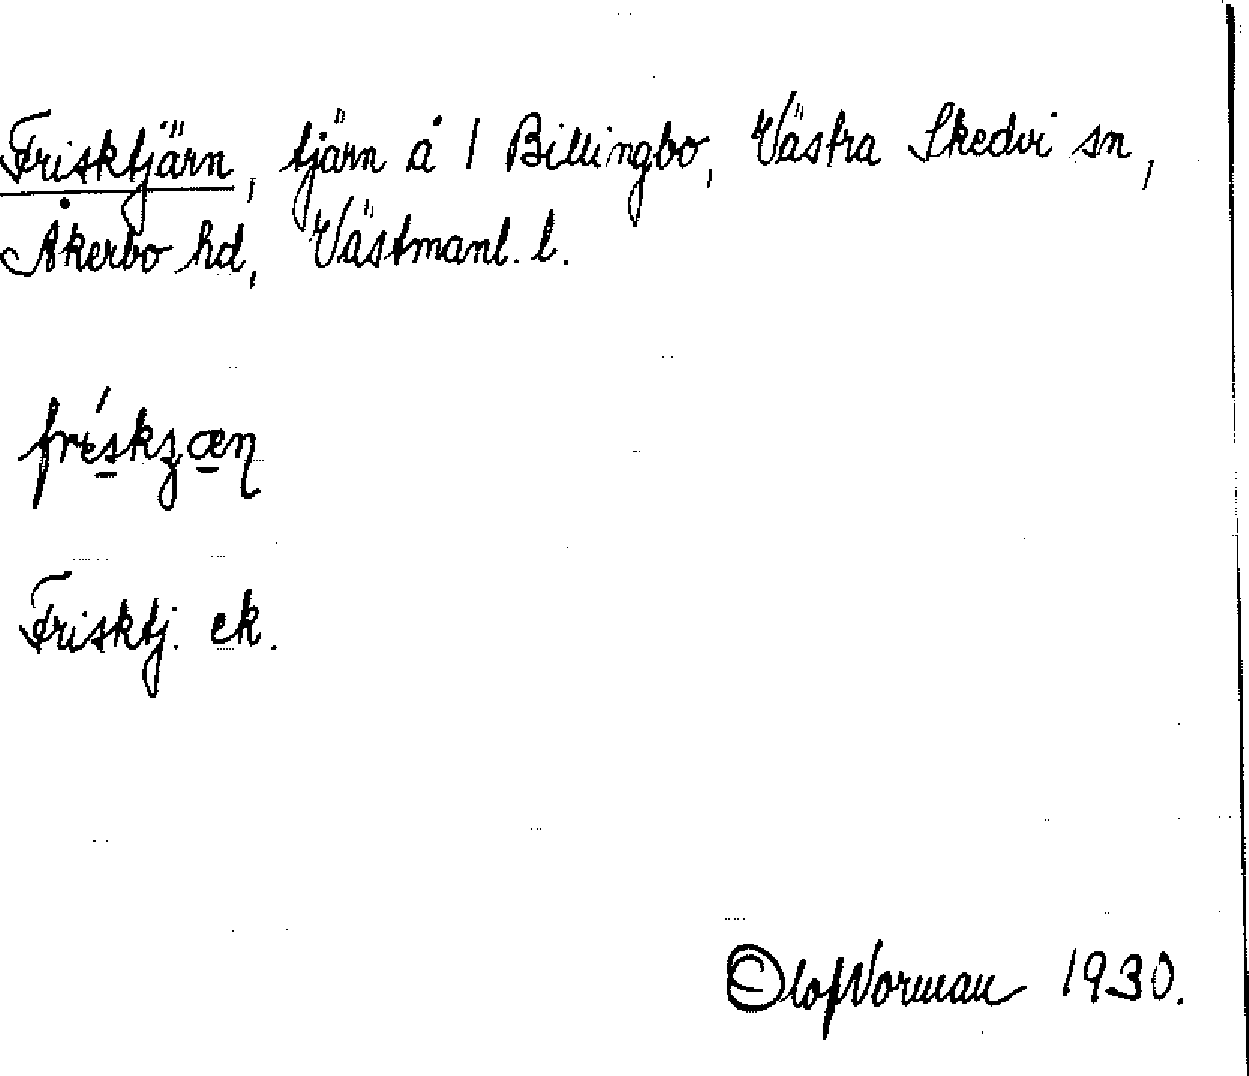 Frisktjärn, tjärn å 1 Billingbo, Västra Skedvi sn,
Åkerbo hd, Västmanl. l.
fréskʒæn
Frisktj. ek.
Olof Norman 1930.